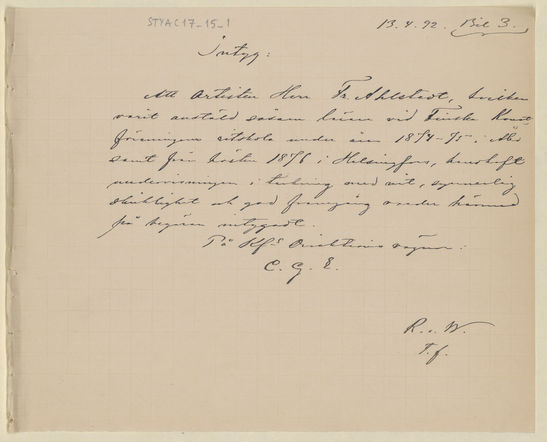 STYA C17-15-1
13.4.92. Bil 3.
Intyg:
Att Artisten Herr Fr. Ahlstedt, hvilken
varit anstäld såsom lärare vid Finska Konst
föreningens ritskola under åren 1874-75 i Åbo
samt från hösten 1876 i Helsingfors, handhaft
undervisningen i teckning med nit, synnerlig
skicklighet och god framgång varder härmed
på begäran intygadt.
På Kfs Direktions vägnar:
C. G. E.
R. v. W.
T. f.